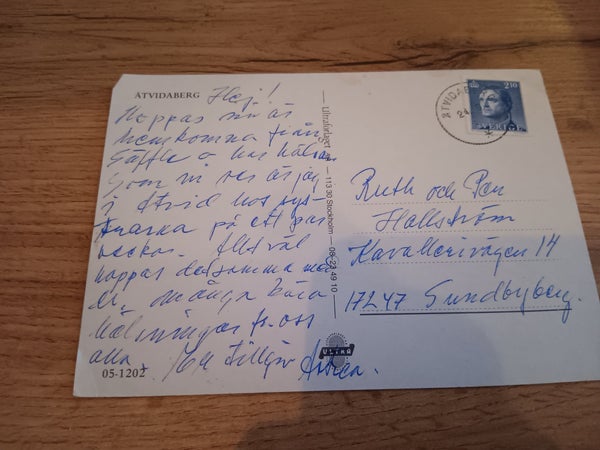 ÅTVIDABERG
Hej!
Hoppas ni är
hemkomna från
Säffle o har hälsan
Som ni ser är jag
i Åtvid hos sys-
trarna på ett par
veckor. Allt väl
hoppas detsamma med
Er. många kära
hälsningar fr. oss
alla.
05-1202
Ultraförlaget
113 30 Stockholm — 08-23 49 10
Ultra
ÅTVIDABE
24
2.10
SVERIGE
Ruth och Per
Hallström
Kavallerivägen 14
172 47 Sundbyberg.